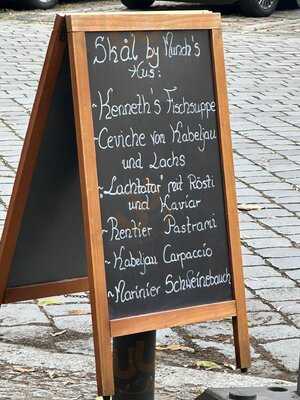 Skål by Munch's
Hus:
~ Kenneth's Fischsuppe
~ Ceviche von Kabeljau
und Lachs
~ "Lachtatar" mit Rösti
und Kaviar
~ Rentier Pastrami
~ Kabeljau Carpaccio
~ Marinier Schweinebauch